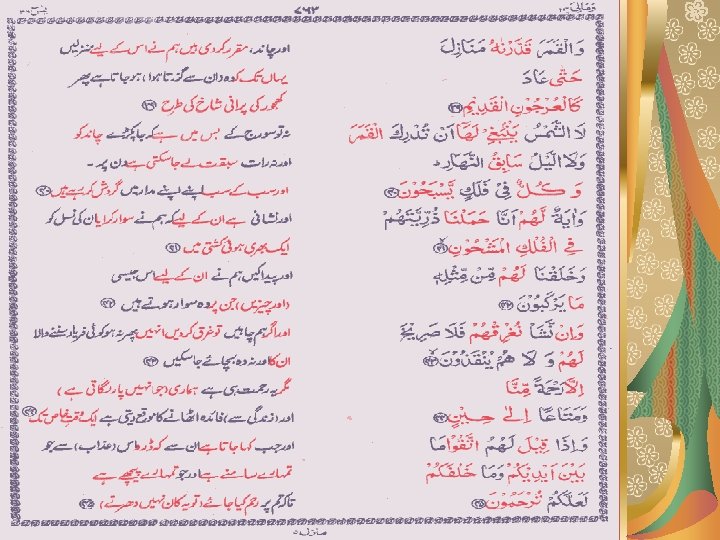 ومالی ۲۳
۷۶۳
یٰسٓ ۳۶
وَالْقَمَرَ قَدَّرْنٰهُ مَنَازِلَ
اور چاند، مقرر کر دی ہیں ہم نے اس کے لیے منزلیں
حَتّٰى عَادَ
یہاں تک کہ وہ (ان سے گزرتا ہوا) ہو جاتا ہے پھر
كَالْعُرْجُوْنِ الْقَدِيْمِ ۳۹
کھجور کی پرانی شاخ کی طرح ۳۹
لَا الشَّمْسُ يَنْۢبَغِيْ لَهَاۤ اَنْ تُدْرِكَ الْقَمَرَ
نہ تو سورج کے بس میں ہے کہ جا پکڑے چاند کو
وَلَا الَّيْلُ سَابِقُ النَّهَارِ ؕ
اور نہ رات سبقت لے جا سکتی ہے دن پر ۔
وَ كُلٌّ فِيْ فَلَكٍ يَّسْبَحُوْنَ ۴۰
اور سب کے سب اپنے اپنے مدار میں گردش کر رہے ہیں ۴۰
وَاٰيَةٌ لَّهُمْ اَنَّا حَمَلْنَا ذُرِّيَّتَهُمْ
اور نشانی ہے ان کے لیے کہ ہم نے سوار کرایا ان کی نسل کو
فِي الْفُلْكِ الْمَشْحُوْنِ ۴۱
ایک بھری ہوئی کشتی میں ۴۱
وَخَلَقْنَا لَهُمْ مِّنْ مِّثْلِهٖ
اور پیدا کیں ہم نے ان کے لیے اس جیسی
مَا يَرْكَبُوْنَ ۴۲
(اور چیزیں) جن پر وہ سوار ہوتے ہیں ۴۲
وَاِنْ نَّشَاْ نُغْرِقْهُمْ فَلَا صَرِيْخَ
اور اگر ہم چاہیں تو غرق کر دیں انہیں پھر نہ ہو کوئی فریاد سننے والا
لَهُمْ وَ لَا هُمْ يُنْقَذُوْنَ ۴۳
ان کا اور نہ وہ بچائے جا سکیں ۴۳
اِلَّا رَحْمَةً مِّنَّا
مگر یہ رحمت ہی ہے ہماری (جو انہیں پار لگاتی ہے)
وَمَتَاعًا اِلٰى حِيْنٍ ۴۴
اور (زندگی سے) فائدہ اٹھانے کا موقع دیتی ہے ایک وقت خاص تک ۴۴
وَاِذَا قِيْلَ لَهُمُ اتَّقُوْا مَا
اور جب کہا جاتا ہے ان سے کہ ڈرو اس (عذاب) سے جو
بَيْنَ اَيْدِيْكُمْ وَمَا خَلْفَكُمْ
تمہارے سامنے ہے اور جو تمہارے پیچھے ہے
لَعَلَّكُمْ تُرْحَمُوْنَ ۴۵
تاکہ تم پر رحم کیا جائے (تو یہ کان نہیں دھرتے) ۴۵
منزل ۵